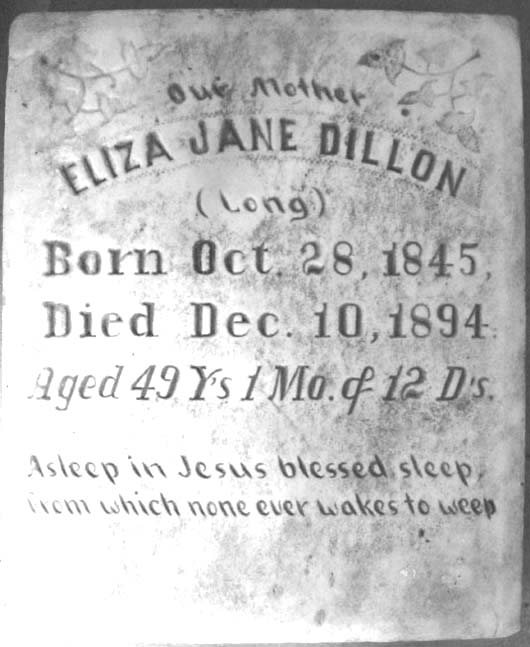 Our Mother
ELIZA JANE DILLON
(Long)
Born Oct. 28, 1845,
Died Dec. 10, 1894.
Aged 49 Y's 1 Mo. & 12 D's.
Asleep in Jesus blessed sleep,
From which none ever wakes to weep